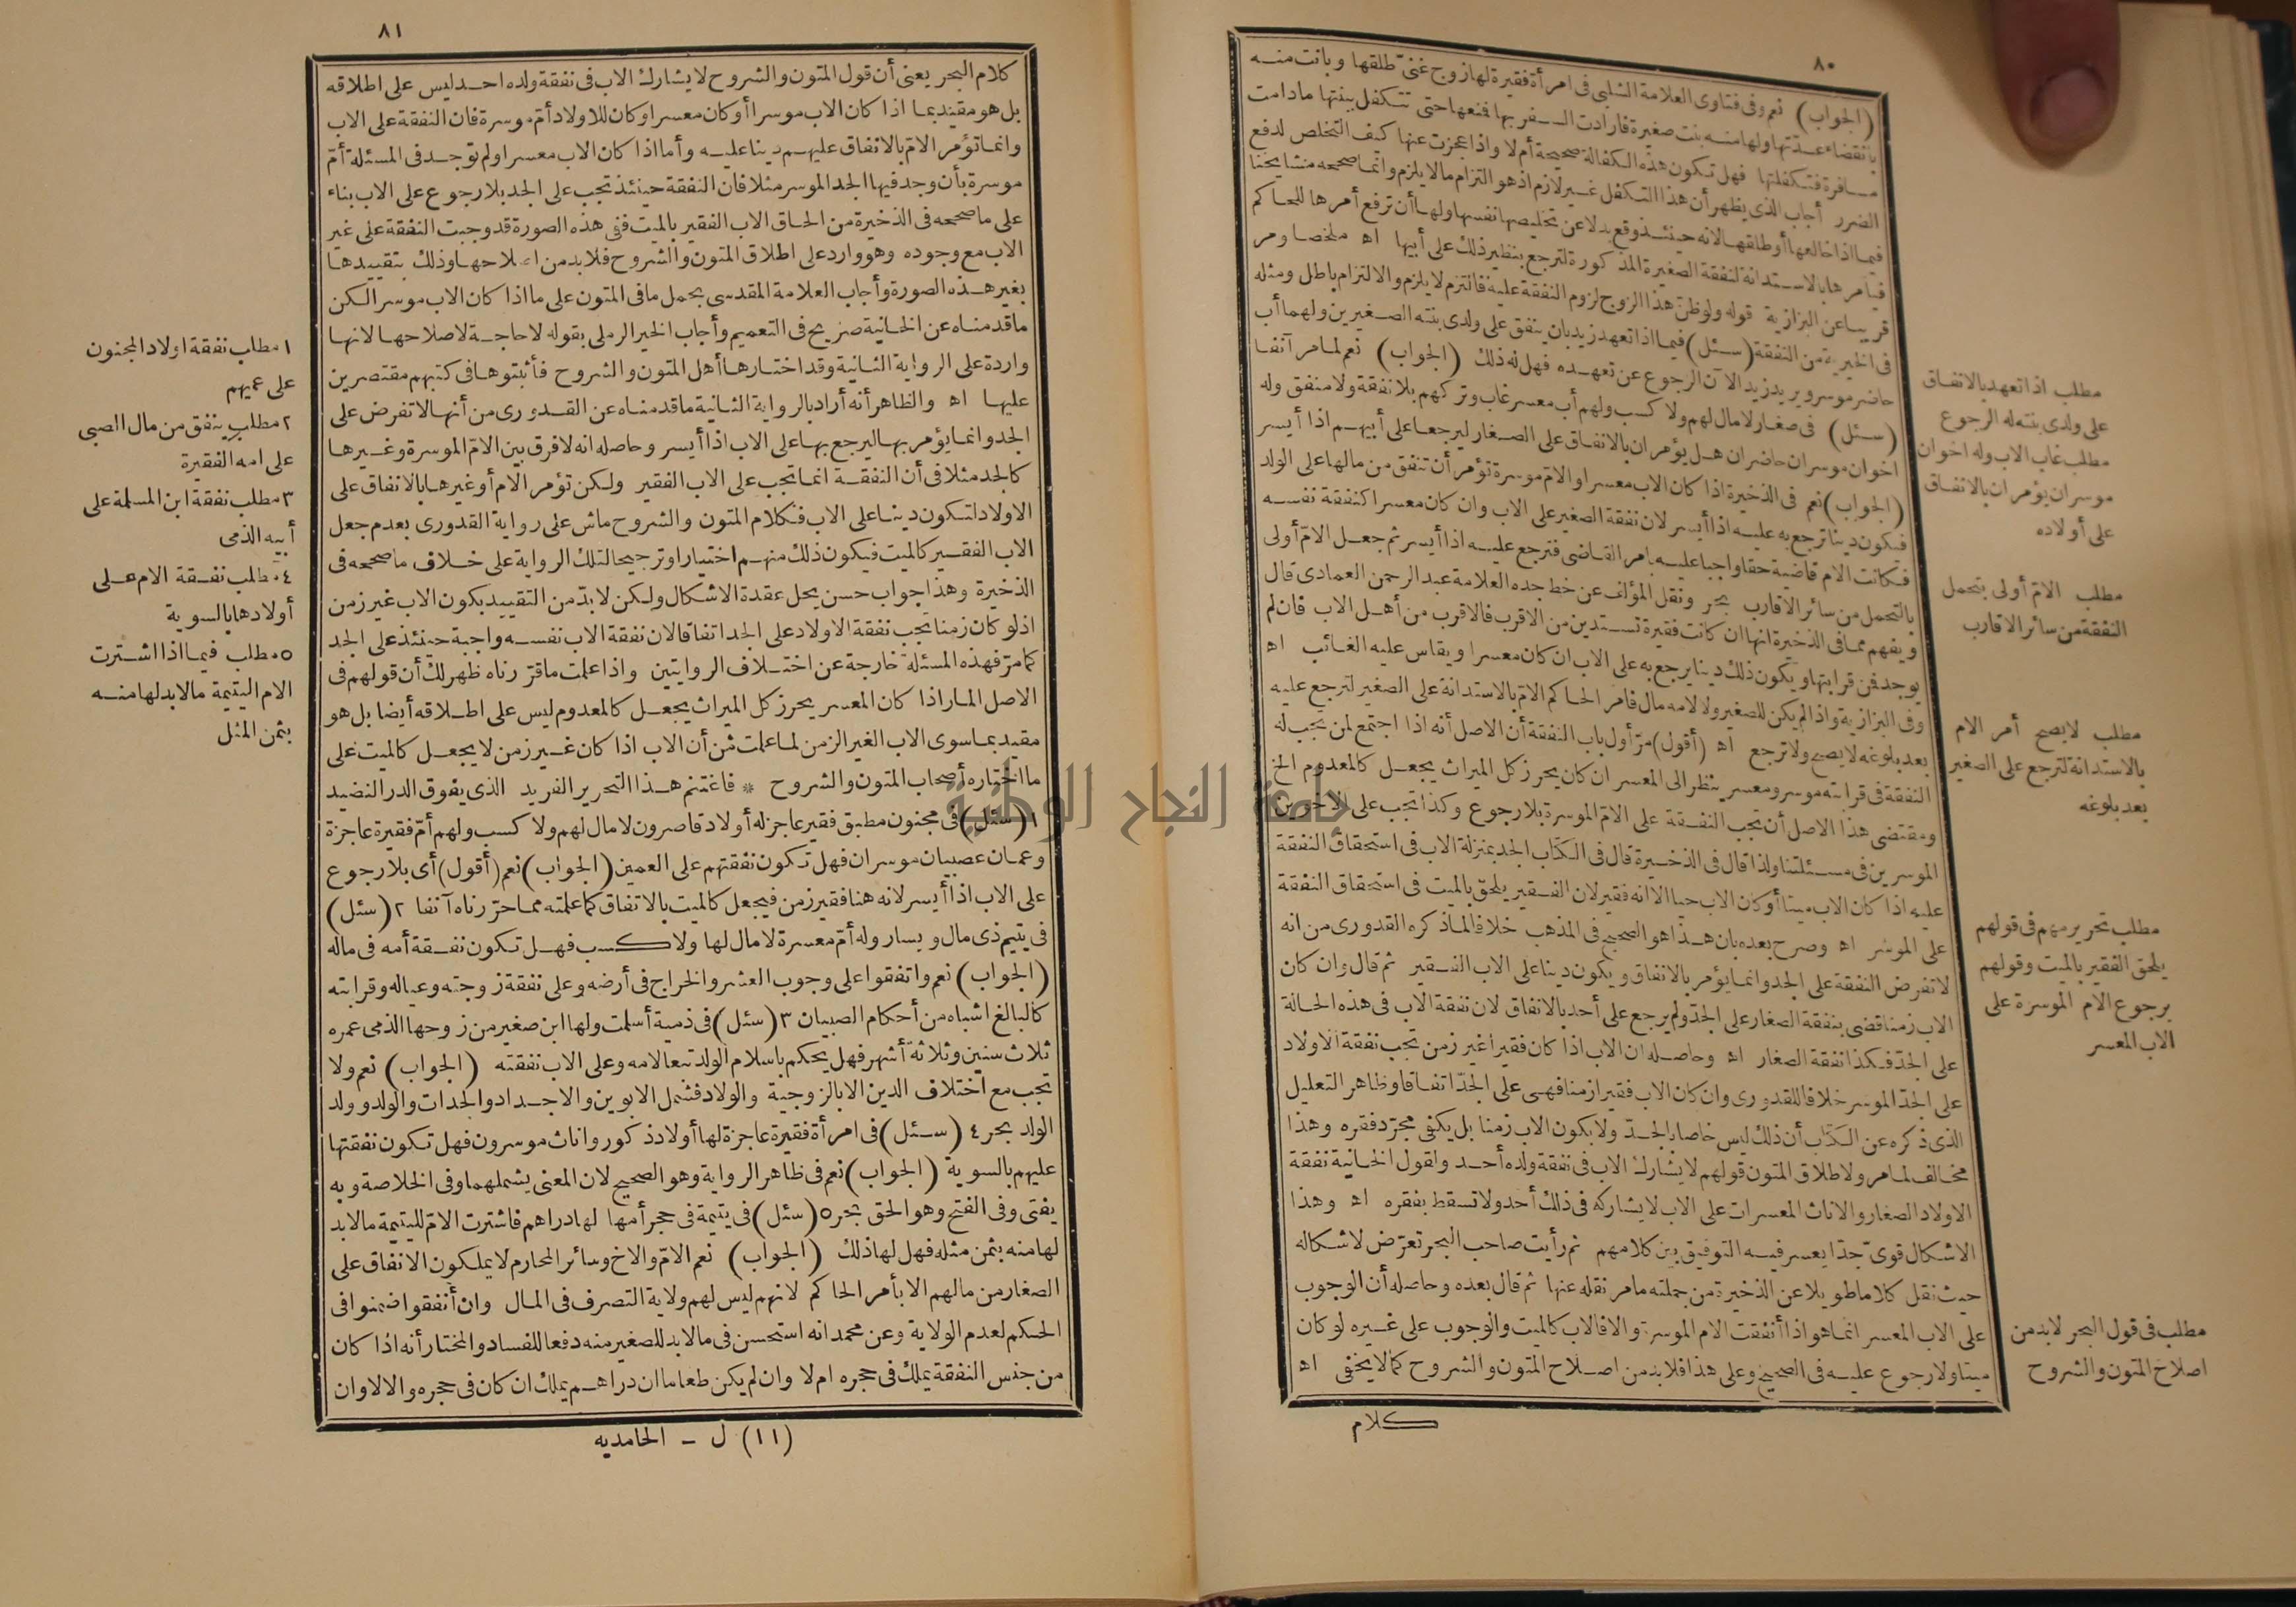 ٨٠
(الجواب) نعم وفى فتاوى العلامة الشلبى فى امرأة فقيرة لها زوج غنى طلقها وبانت منه
بانقضاء عدتها ولها منه بنت صغيرة فأرادت السفر بها فمنعها حتى تتكفل ببنتها مادامت
مسافرة فتكفلتها فهل تكون هذه الكفالة صحيحة أم لا واذا عجزت عنها كيف التخلص لدفع
الضرر أجاب الذى يظهر أن هذا التكفل غير لازم اذ هو التزام مالا يلزم وانما صححه مشايخنا
فيما اذا خالعها أو طلقها لانه حينئذ وقع بدلا عن تخليصها نفسها ولها أن ترفع أمرها للحاكم
فيأمرها بالاستدانة لنفقة الصغيرة المذكورة لترجع بنظير ذلك على أبيها اه ملخصا ومر
قريبا عن البزازية قوله ولو ظن هذا الزوج لزوم النفقة عليه فالتزم لا يلزم والالتزام باطل ومثله
فى الخيرية من النفقة (سئل) فيما اذا تعهد زيد بان ينفق على ولدى بنته الصغيرين ولهما أب
حاضر موسر ويريد زيد الآن الرجوع عن تعهده فهل له ذلك (الجواب) نعم لما مر آنفا
(سئل) فى صغار لا مال لهم ولا كسب ولهم أب معسر غاب وتركهم بلا نفقة ولا منفق وله
اخوان موسران حاضران هل يؤمران بالانفاق على الصغار ليرجعا على أبيهم اذا أيسر
(الجواب) نعم فى الذخيرة اذا كان الاب معسرا والام موسرة تؤمر أن تنفق من مالها على الولد
فيكون دينا ترجع به عليه اذا أيسر لان نفقة الصغير على الاب وان كان معسرا كنفقة نفسه
فكانت الام قاضية حقا واجبا عليه بامر القاضى فترجع عليه اذا أيسر ثم جعل الام أولى
بالتحمل من سائر الاقارب بحر ونقل المؤلف عن خط جده العلامة عبد الرحمن العمادى قال
ويفهم مما فى الذخيرة انها ان كانت فقيرة تستدين من الاقرب فالاقرب من أهل الاب فان لم
يوجد فمن قرابتها ويكون ذلك دينا يرجع به على الاب ان كان معسرا ويقاس عليه الغائب اه
وفى البزازية واذا لم يكن للصغير ولا لامه مال فأمر الحاكم الام بالاستدانة على الصغير لترجع عليه
بعد بلوغه لا يصح ولا ترجع اه (أقول) مر أول باب النفقة أن الاصل أنه اذا اجتمع لمن تجب له
النفقة فى قرابته موسر ومعسر ينظر الى المعسر ان كان يحرز كل الميراث يجعل كالمعدوم الخ
ومقتضى هذا الاصل أن تجب النفقة على الام الموسرة بلا رجوع وكذا تجب على الاخوين
الموسرين فى مسئلتنا ولذا قال فى الذخيرة قال فى الكتاب الجد بمنزلة الاب فى استحقاق النفقة
عليه اذا كان الاب ميتا أو كان الاب حيا الا انه فقير لان الفقير يلحق بالميت فى استحقاق النفقة
على الموسر اه وصرح بعده بان هذا هو الصحيح فى المذهب خلافا لما ذكره القدورى من انه
لا تفرض النفقة على الجد وانما يؤمر بالانفاق ويكون دينا على الاب الفقير ثم قال وان كان
الاب زمنا قضى بنفقة الصغار على الجد ولم يرجع على أحد بالانفاق لان نفقة الاب فى هذه الحالة
على الجد فكذا نفقة الصغار اه وحاصله ان الاب اذا كان فقيرا غير زمن تجب نفقة الاولاد
على الجد الموسر خلافا للقدورى وان كان الاب فقيرا زمنا فهى على الجد اتفاقا وظاهر التعليل
الذى ذكره عن الكتاب أن ذلك ليس خاصا بالجد ولا بكون الاب زمنا بل يكفى مجرد فقره وهذا
مخالف لما مر ولاطلاق المتون قولهم لا يشارك الاب فى نفقة ولده أحد ولقول الخانية نفقة
الاولاد الصغار والاناث المعسرات على الاب لا يشاركه فى ذلك أحد ولا تسقط بفقره اه وهذا
الاشكال قوى جدا يعسر فيه التوفيق بين كلامهم ثم رأيت صاحب البحر تعرض لاشكاله
حيث نقل كلاما طويلا عن الذخيرة من جملته ما مر نقله عنها ثم قال بعده وحاصله أن الوجوب
على الاب المعسر انما هو اذا أنفقت الام الموسرة والا فالاب كالميت والوجوب على غيره لو كان
ميتا ولا رجوع عليه فى الصحيح وعلى هذا فلا بد من اصلاح المتون والشروح كما لا يخفى اه
كلام
مطلب اذا تعهد بالانفاق
على ولدى بنته له الرجوع
مطلب غاب الاب وله اخوان
موسران يؤمران بالانفاق
على أولاده
مطلب الام أولى بتحمل
النفقة من سائر الاقارب
مطلب لا يصح أمر الام
بالاستدانة لترجع على الصغير
بعد بلوغه
مطلب تحرير مهم فى قولهم
يلحق الفقير بالميت وقولهم
برجوع الام الموسرة على
الاب المعسر
مطلب فى قول البحر لابد من
اصلاح المتون والشروح
٨١
كلام البحر يعنى أن قول المتون والشروح لا يشارك الاب فى نفقة ولده احد ليس على اطلاقه
بل هو مقيد بما اذا كان الاب موسرا أو كان معسرا وكان للاولاد أم موسرة فان النفقة على الاب
وانما تؤمر الام بالانفاق عليهم دينا عليه وأما اذا كان الاب معسرا ولم توجد فى المسئلة أم
موسرة بأن وجد فيها الجد الموسر مثلا فان النفقة حينئذ تجب على الجد بلا رجوع على الاب بناء
على ما صححه فى الذخيرة من الحاق الاب الفقير بالميت ففى هذه الصورة قد وجبت النفقة على غير
الاب مع وجوده وهو وارد على اطلاق المتون والشروح فلا بد من اصلاحها وذلك بتقييدها
بغير هذه الصورة وأجاب العلامة المقدسى بحمل ما فى المتون على ما اذا كان الاب موسرا لكن
ما قدمناه عن الخانية صريح فى التعميم وأجاب الخير الرملى بقوله لا حاجة لاصلاحها لانها
واردة على الرواية الثانية وقد اختارها أهل المتون والشروح فأثبتوها فى كتبهم مقتصرين
عليها اه والظاهر أنه أراد بالرواية الثانية ما قدمناه عن القدورى من أنها لا تفرض على
الجد وانما يؤمر بها ليرجع بها على الاب اذا أيسر وحاصله انه لا فرق بين الام الموسرة وغيرها
كالجد مثلا فى أن النفقة انما تجب على الاب الفقير ولكن تؤمر الام أو غيرها بالانفاق على
الاولاد لتكون دينا على الاب فكلام المتون والشروح ماش على رواية القدورى بعدم جعل
الاب الفقير كالميت فيكون ذلك منهم اختيارا وترجيحا لتلك الرواية على خلاف ما صححه فى
الذخيرة وهذا جواب حسن يحل عقدة الاشكال ولكن لا بد من التقييد بكون الاب غير زمن
اذ لو كان زمنا تجب نفقة الاولاد على الجد اتفاقا لان نفقة الاب نفسه واجبة حينئذ على الجد
كما مر فهذه المسئلة خارجة عن اختلاف الروايتين واذا علمت ما قررناه ظهر لك أن قولهم فى
الاصل المار اذا كان المعسر يحرز كل الميراث يجعل كالمعدوم ليس على اطلاقه أيضا بل هو
مقيد بما سوى الاب الغير الزمن لما علمت من أن الاب اذا كان غير زمن لا يجعل كالميت على
ما اختاره أصحاب المتون والشروح * فاغتنم هذا التحرير الفريد الذى يفوق الدر النضيد
١ (سئل) فى مجنون مطبق فقير عاجز له أولاد قاصرون لا مال لهم ولا كسب ولهم أم فقيرة عاجزة
وعمان عصبيان موسران فهل تكون نفقتهم على العمين (الجواب) نعم (أقول) أى بلا رجوع
على الاب اذا أيسر لانه هنا فقير زمن فيجعل كالميت بالاتفاق كما علمته مما حررناه آنفا ٢ (سئل)
فى يتيم ذى مال ويسار وله أم معسرة لا مال لها ولا كسب فهل تكون نفقة أمه فى ماله
(الجواب) نعم واتفقوا على وجوب العشر والخراج فى أرضه وعلى نفقة زوجته وعياله وقرابته
كالبالغ اشباه من أحكام الصبيان ٣ (سئل) فى ذمية أسلمت ولها ابن صغير من زوجها الذمى عمره
ثلاث سنين وثلاثة أشهر فهل يحكم باسلام الولد تبعا لامه وعلى الاب نفقته (الجواب) نعم ولا
تجب مع اختلاف الدين الا بالزوجية والولاد فشمل الابوين والاجداد والجدات والولد وولد
الولد بحر ٤ (سئل) فى امرأة فقيرة عاجزة لها أولاد ذكور واناث موسرون فهل تكون نفقتها
عليهم بالسوية (الجواب) نعم فى ظاهر الرواية وهو الصحيح لان المعنى يشملهما وفى الخلاصة وبه
يفتى وفى الفتح وهو الحق بحر ٥ (سئل) فى يتيمة فى حجر أمها لها دراهم فاشترت الام لليتيمة ما لابد
لها منه بثمن مثله فهل لها ذلك (الجواب) نعم الام والاخ وسائر المحارم لا يملكون الانفاق على
الصغار من مالهم الا بأمر الحاكم لانهم ليس لهم ولاية التصرف فى المال وان أنفقوا ضمنوا فى
الحكم لعدم الولاية وعن محمد انه استحسن فى ما لابد للصغير منه دفعا للفساد والمختار أنه اذا كان
من جنس النفقة يملك فى حجره ام لا وان لم يكن طعاما ان دراهم يملك ان كان فى حجره والا لا وان
(١١) ل - الحامديه
١ مطلب نفقة اولاد المجنون
على عميهم
٢ مطلب ينفق من مال الصبى
على امه الفقيرة
٣ مطلب نفقة ابن المسلمة على
أبيه الذمى
٤ مطلب نفقة الام على
أولادها بالسوية
٥ مطلب فيما اذا اشترت
الام اليتيمة مالا بد لها منه
بثمن المثل
جامعة النجاح الوطنية